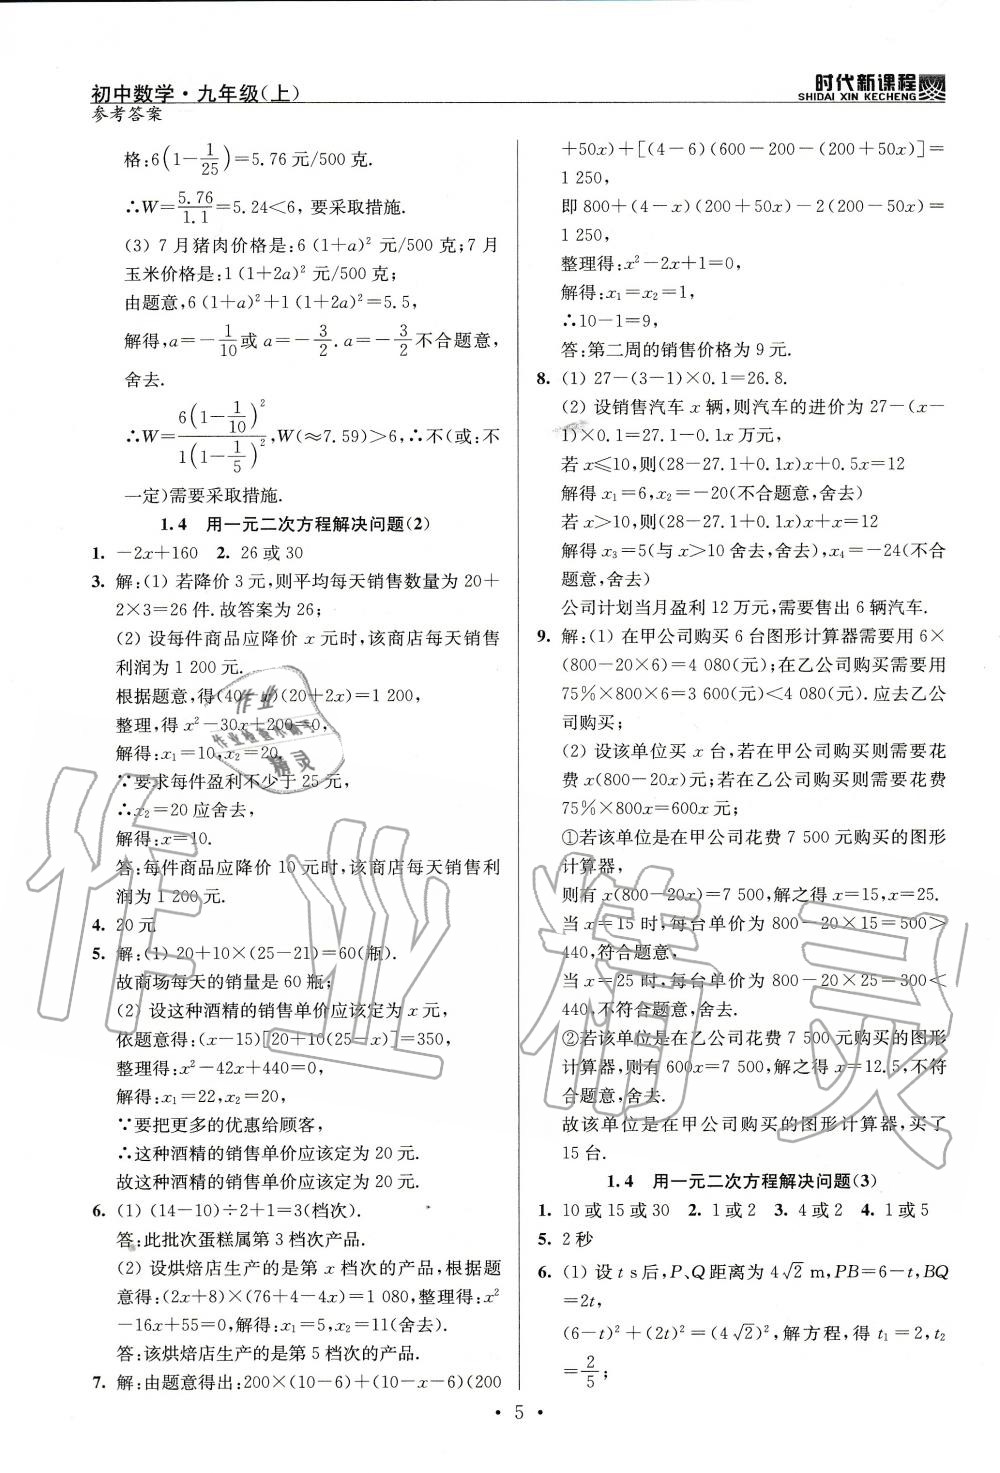 初中数学·九年级(上)
参考答案
时代新课程
SHIDAI XIN KECHENG
格:6(1-1/25)=5.76元/500克.
∴W=5.76/1.1=5.24<6,要采取措施.
(3) 7月猪肉价格是:6(1+a)²元/500克;7月
玉米价格是:1(1+2a)²元/500克;
由题意,6(1+a)²+1(1+2a)²=5.5,
解得,a=-1/10或a=-3/2.a=-3/2不合题意,
舍去.
∴W=6(1-1/10)²/1(1-1/5)²,W(≈7.59)>6,∴不(或:不
一定)需要采取措施.
1.4 用一元二次方程解决问题(2)
1. -2x+160 2. 26或30
3. 解:(1) 若降价3元,则平均每天销售数量为20+
2×3=26件.故答案为26;
(2) 设每件商品应降价x元时,该商店每天销售
利润为1 200元.
根据题意,得(40-x)(20+2x)=1 200,
整理,得x²-30x+200=0,
解得:x₁=10,x₂=20.
∵要求每件盈利不少于25元,
∴x₂=20应舍去,
解得:x=10.
答:每件商品应降价10元时,该商店每天销售利
润为1 200元.
4. 20元
5. 解:(1) 20+10×(25-21)=60(瓶).
故商场每天的销量是60瓶;
(2) 设这种酒精的销售单价应该定为x元,
依题意得:(x-15)[20+10(25-x)]=350,
整理得:x²-42x+440=0,
解得:x₁=22,x₂=20,
∵要把更多的优惠给顾客,
∴这种酒精的销售单价应该定为20元.
故这种酒精的销售单价应该定为20元.
6. (1) (14-10)÷2+1=3(档次).
答:此批次蛋糕属第3档次产品.
(2) 设烘焙店生产的是第x档次的产品,根据题
意得:(2x+8)×(76+4-4x)=1 080,整理得:x²
-16x+55=0,解得:x₁=5,x₂=11(舍去).
答:该烘焙店生产的是第5档次的产品.
7. 解:由题意得出:200×(10-6)+(10-x-6)(200
+50x)+[(4-6)(600-200-(200+50x)]=
1 250,
即800+(4-x)(200+50x)-2(200-50x)=
1 250,
整理得:x²-2x+1=0,
解得:x₁=x₂=1,
∴10-1=9,
答:第二周的销售价格为9元.
8. (1) 27-(3-1)×0.1=26.8.
(2) 设销售汽车x辆,则汽车的进价为27-(x-
1)×0.1=27.1-0.1x万元,
若x≤10,则(28-27.1+0.1x)x+0.5x=12
解得x₁=6,x₂=-20(不合题意,舍去)
若x>10,则(28-27.1+0.1x)x+x=12
解得x₃=5(与x>10舍去,舍去),x₄=-24(不合
题意,舍去)
公司计划当月盈利12万元,需要售出6辆汽车.
9. 解:(1) 在甲公司购买6台图形计算器需要用6×
(800-20×6)=4 080(元);在乙公司购买需要用
75%×800×6=3 600(元)<4 080(元).应去乙公
司购买;
(2) 设该单位买x台,若在甲公司购买则需要花
费x(800-20x)元;若在乙公司购买则需要花费
75%×800x=600x元;
①若该单位是在甲公司花费7 500元购买的图形
计算器,
则有x(800-20x)=7 500,解之得x=15,x=25.
当x=15时,每台单价为800-20×15=500>
440,符合题意,
当x=25时,每台单价为800-20×25=300<
440,不符合题意,舍去.
②若该单位是在乙公司花费7 500元购买的图形
计算器,则有600x=7 500,解之得x=12.5,不符
合题意,舍去.
故该单位是在甲公司购买的图形计算器,买了
15台.
1.4 用一元二次方程解决问题(3)
1. 10或15或30 2. 1或2 3. 4或2 4. 1或5
5. 2秒
6. (1) 设t s后,P、Q距离为4√2 m,PB=6-t,BQ
=2t,
(6-t)²+(2t)²=(4√2)²,解方程,得t₁=2,t₂
=2/5;
·5·
作业精灵